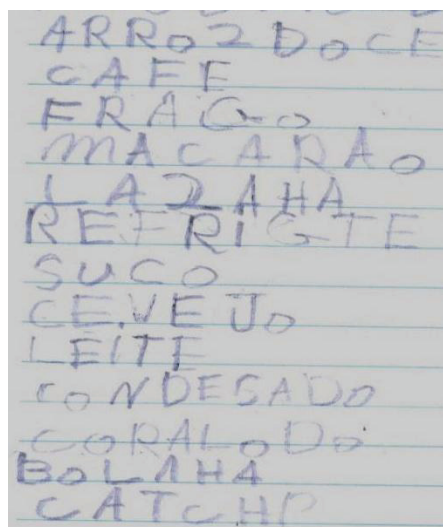 ARROZ DOCE
CAFE
FRAGO
MACARAO
LAZAHA
REFRIGTE
SUCO
CEVEJO
LEITE
CONDESADO
CORALODO
BOLAHA
CATCHP